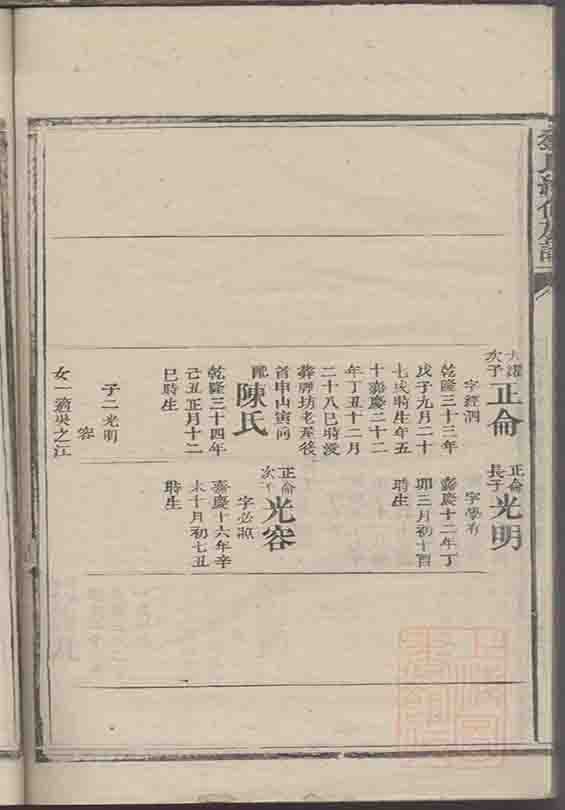 次子
正侖
乾隆三十三年
戊子九月二十
七戌時生年五
十嘉慶二十二
年丁丑十二月
二十八巳時沒
葬牌坊老屋後
首申山寅向
配
陳氏
乾隆三十四年
己丑正月十二
巳時生
子二光明
容
女一適吳之江
正侖
長子
光明
嘉慶十二年丁
卯三月初十酉
時生
正侖
次子
光容
嘉慶十六年辛
未十月初七丑
時生